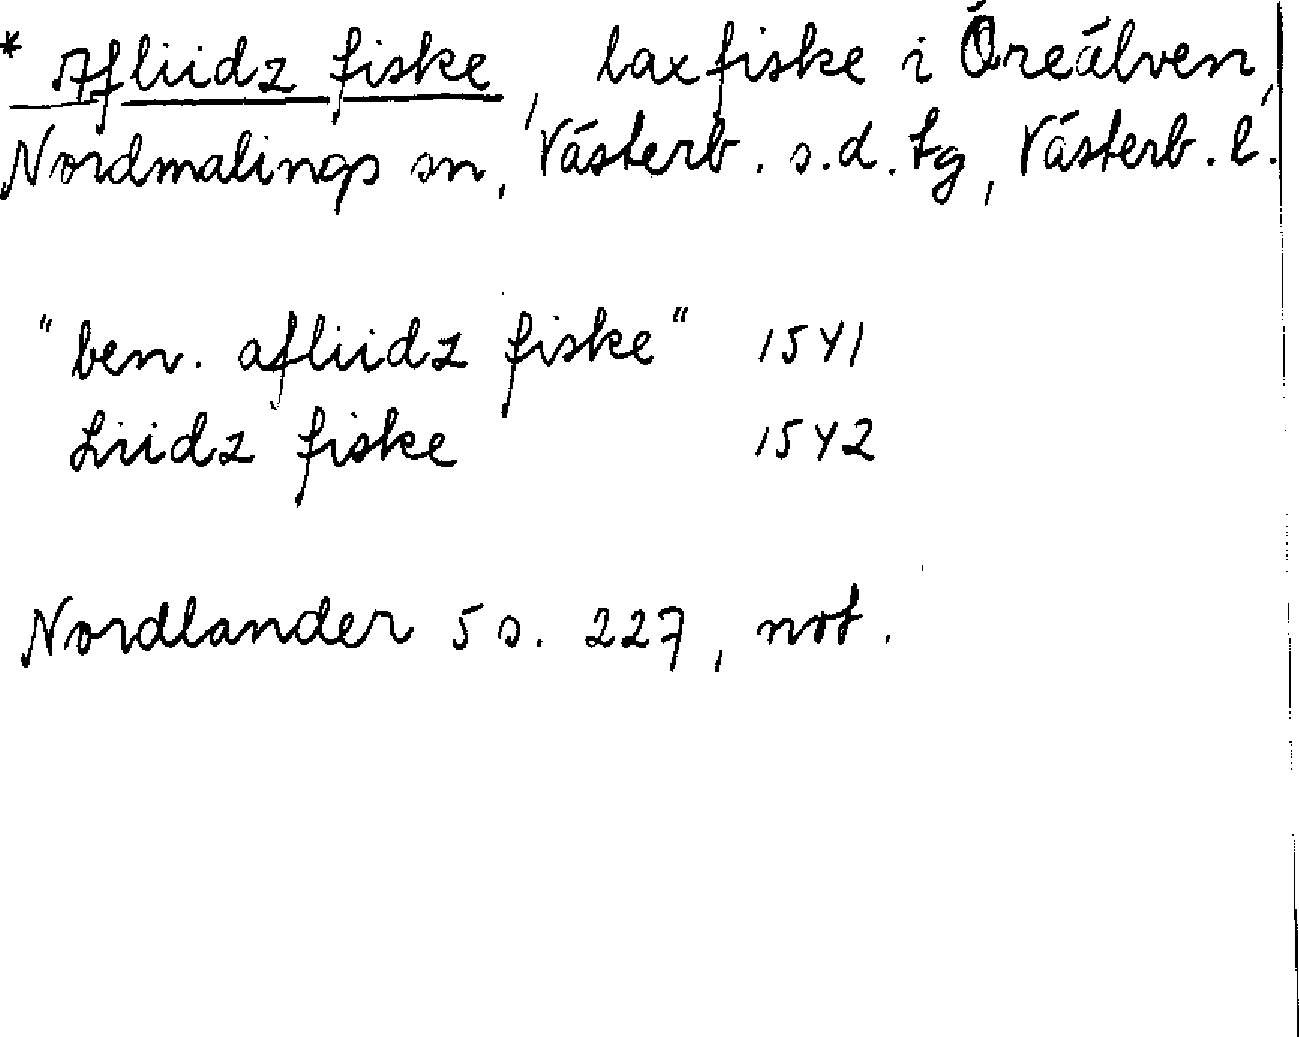 * Afliidz fiske, laxfiske i Öreälven,
Nordmalings sn, Västerb. s.d. tg, Västerb. l.
"ben. afliidz fiske" 1541
Liidz fiske 1542
Nordlander 5 s. 227, not.